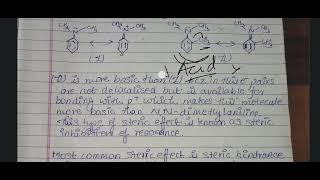 CH₃ CH₃
CH₃ CH₃
(I) (II)
Acid
(II) is more basic than (I) bcz in this e⁻ pairs
are not delocalised but is available for
bonding with p⁺ which makes this molecule
more basic than N,N-dimethylaniline.
This type of steric effect is known as steric
inhibition of resonance.
Most common steric effect is steric hindrance